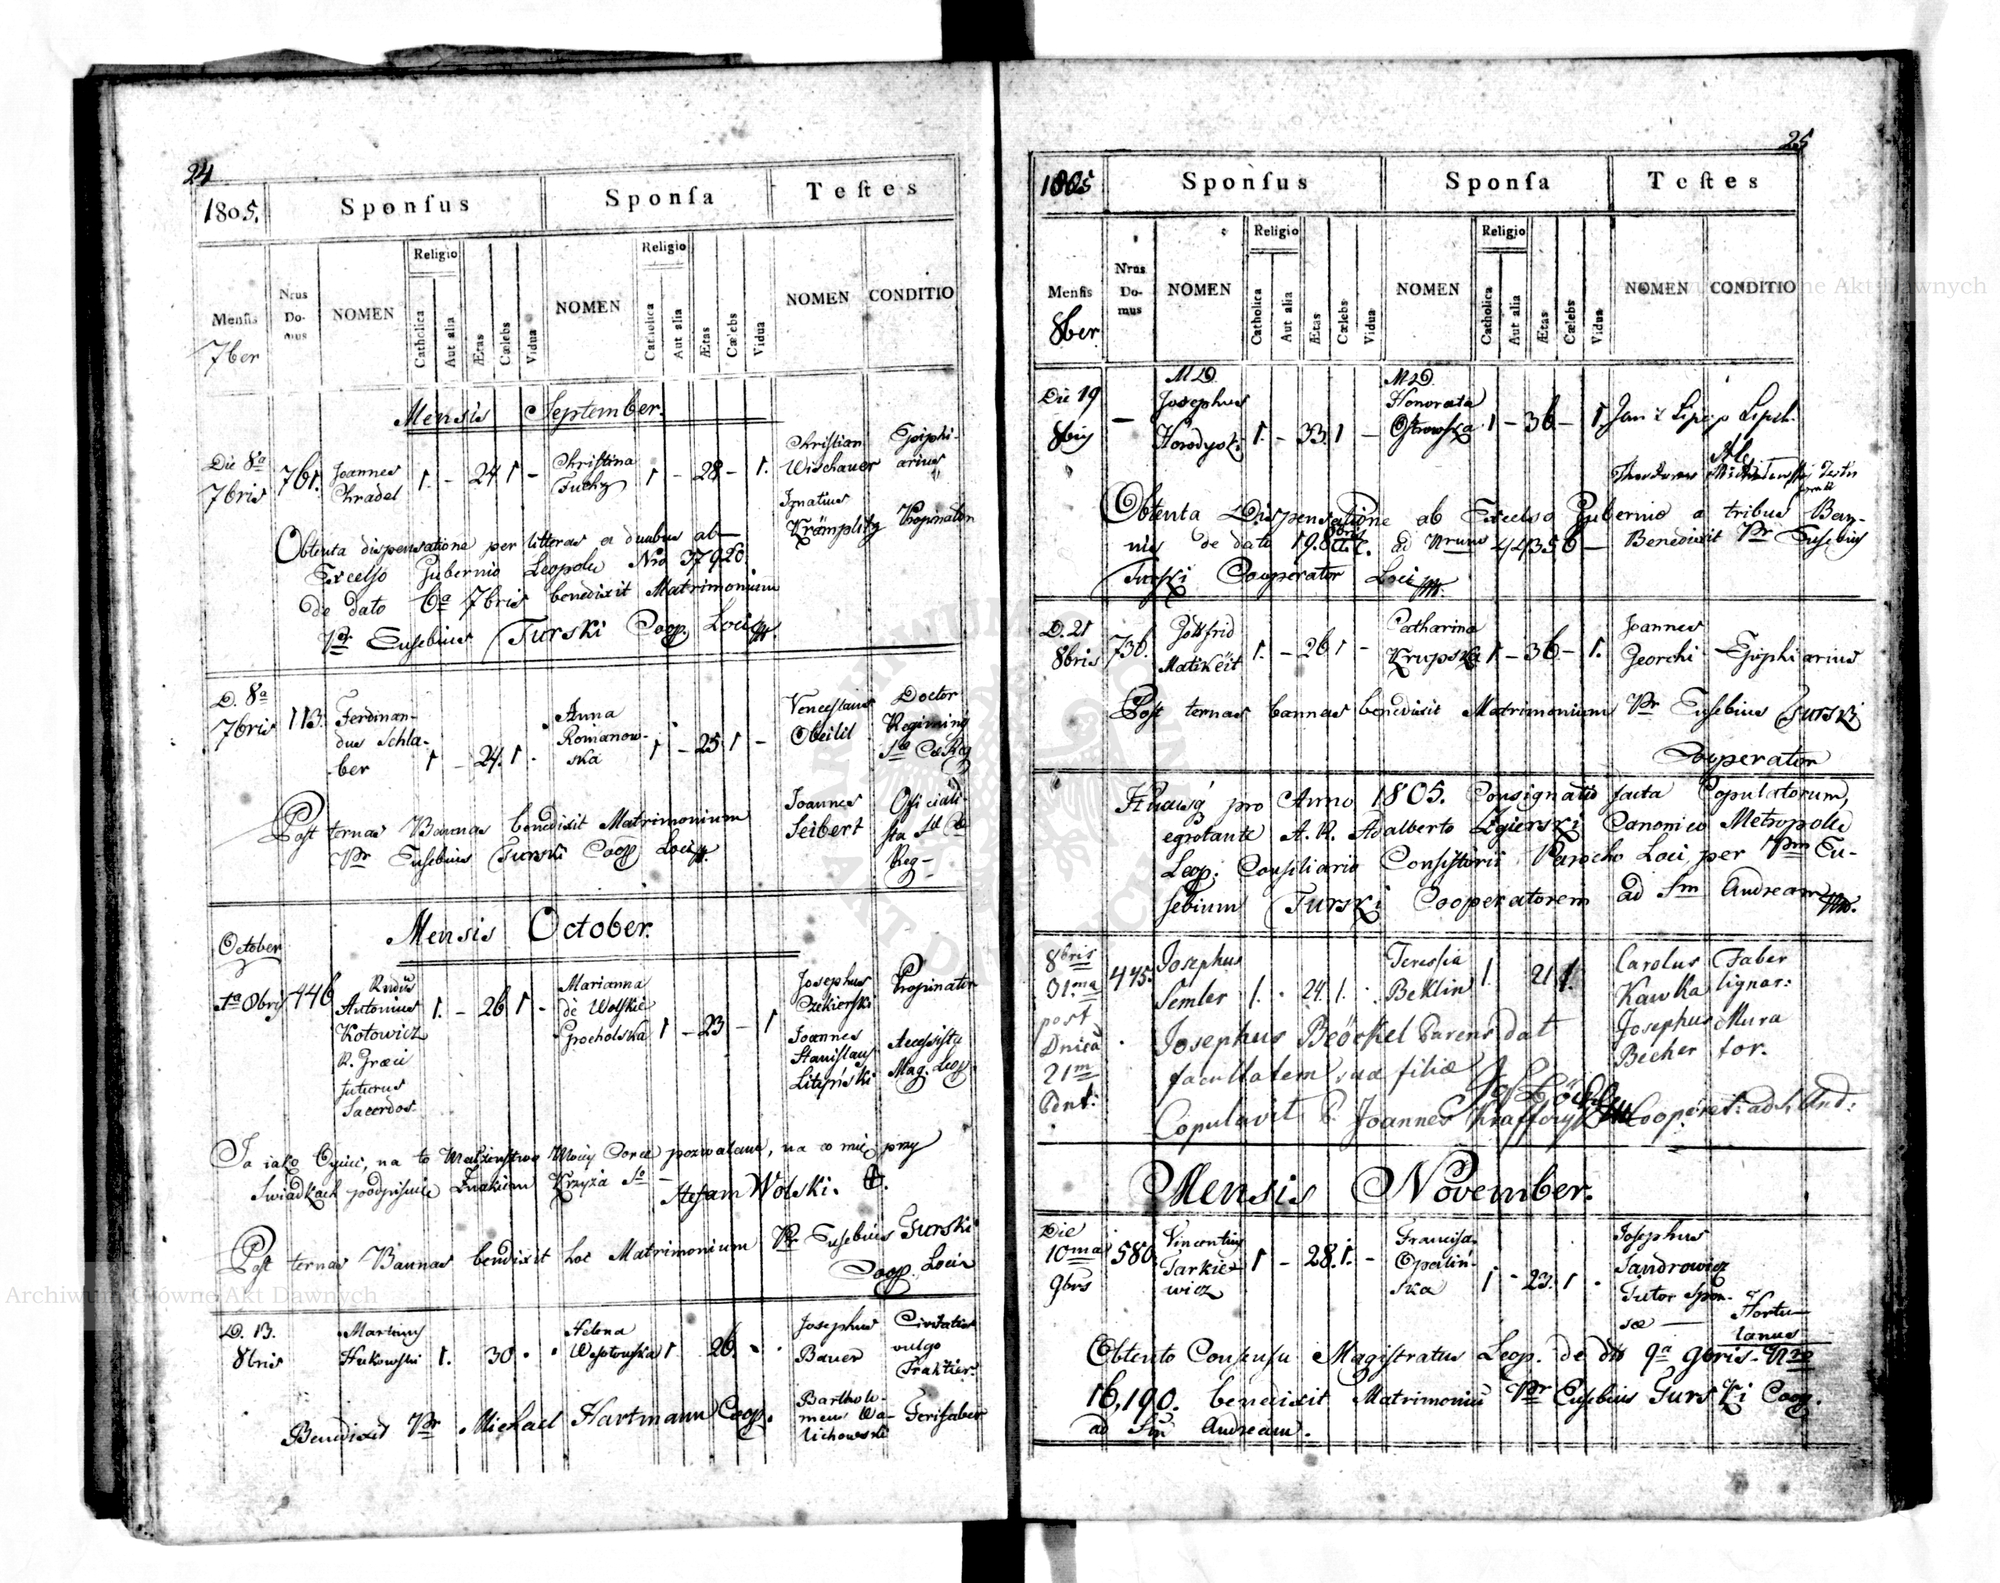 24
1805.
Sponsus
Sponsa
Testes
Mensis
7ber
Nrus Do-mus
NOMEN
Religio
Catholica
Aut alia
Ætas
Cælebs
Vidua
NOMEN
Religio
Catholica
Aut alia
Ætas
Cælebs
Vidua
NOMEN
CONDITIO
Mensis September.
Die 8a 7bris
761.
Joannes
Chradel
1. - 24 1 -
Christina
Fuchz
1 - 28 - 1.
Christian
Wischauer
Ignatius
Krämplitz
Propinator
Obtenta dispensatione per litteras a duabus ab
Excelso Gubernio Leopoli Nro 37920.
de dato 6a 7bris benedixit Matrimonium
Pr Eusebius Turski Coop. Loci
D. 8a
7bris
113.
Ferdinan-
dus Schla-
ber
1 - 24. 1 -
Anna
Romanow-
ska
1 - 25 1 -
Venceslaus
Doctor
Joannes
Seibert
Officiali-
sta
Reg-
Post ternas Bannas benedixit Matrimonium
Pr Eusebius Turski Coop Loci
October
Mensis October.
1a 8bris
446
Antonius
Kotowicz
R. Græci
futurus
Sacerdos.
1. - 26 1 -
Marianna
de Wolskie
Grocholska
1 - 23 - 1
Josephus
Czekierski
Propinator
Joannes
Stanislaus
Accessista
Mag. Leop.
Ja iako Oyciec, na to Małzenstwo Moiey Corce pozwalam, na co się przy
Swiadkach podpisuie Znakiem Krzyża So
Stefan Wolski. +.
Post ternas Bannas bendixit hoc Matrimonium Pr Eusebius Turski
Coop. Loci
D. 13.
8bris
Martinus
1. 30
Helena
Wesołowska
1 26.
Josephus
Bauer
Civitatis
vulgo
Traktier.
Bartholo-
meus
Benedixit Pr Michael Hartmann Coop.
25
1805
Sponsus
Sponsa
Testes
Mensis
8ber
Nrus. Do-mus
NOMEN
Religio
Catholica
Aut alia
Ætas
Cælebs
Vidua
NOMEN
Religio
Catholica
Aut alia
Ætas
Cælebs
Vidua
NOMEN
CONDITIO
Die 19
8bris
MD
Josephus
Horodysk.
1. - 33 1 -
MD.
Honorata
Ostrowska
1 - 36 - 1.
Obtenta Dispensatione ab Excelso Gubernio a tribus Ban-
nis de dato 19. 8bris ad Nrum 44356 - Benedixit Pr Eusebius
Turski Cooperator Loci
D. 21
8bris
736.
Gottfrid
Matikeit
1. - 26 1 -
Catharina
Krupska
1 - 36 - 1.
Joannes
Georchi
Post ternas bannas benedixit Matrimonium Pr Eusebius Turski
Cooperator
pro Anno 1805. Consignatio facta Copulatorum,
egrotante A. R. Adalberto Ligierski Canonico Metropoli
Leop. Consiliario Consistorii Parocho Loci, per Prm Eu-
sebium Turski Cooperatorem ad Sm Andream
8bris
31.ma
post
Dnica
21m
Pent:
475.
Josephus
Semler
1. - 24. 1.
Teressia
Beklin
1. 21 1.
Carolus
Kawka
Faber
lignar:
Josephus
Becher
Mura
tor.
Josephus Beöckel Parens dat
facultatem suæ filiæ
Copulavit P. Joannes Cooperat: ad S. And:
Mensis November.
Die
10ma
9bris
580.
Vincentius
Tarkie-
wicz
1 - 28. 1. -
Francisca
Opalin-
ska
1 - 23. 1 -
Josephus
Jandrowicz
Tutor Spon-
sæ
Hortu-
lanus
Obtento Consensu Magistratus Leop. de dto 9a 9bris Nro
16,190. benedixit Matrimoniu Pr Eusebius Turski Coop.
ad Sm Andream.
Archiwum Główne Akt Dawnych
Archiwum Główne Akt Dawnych